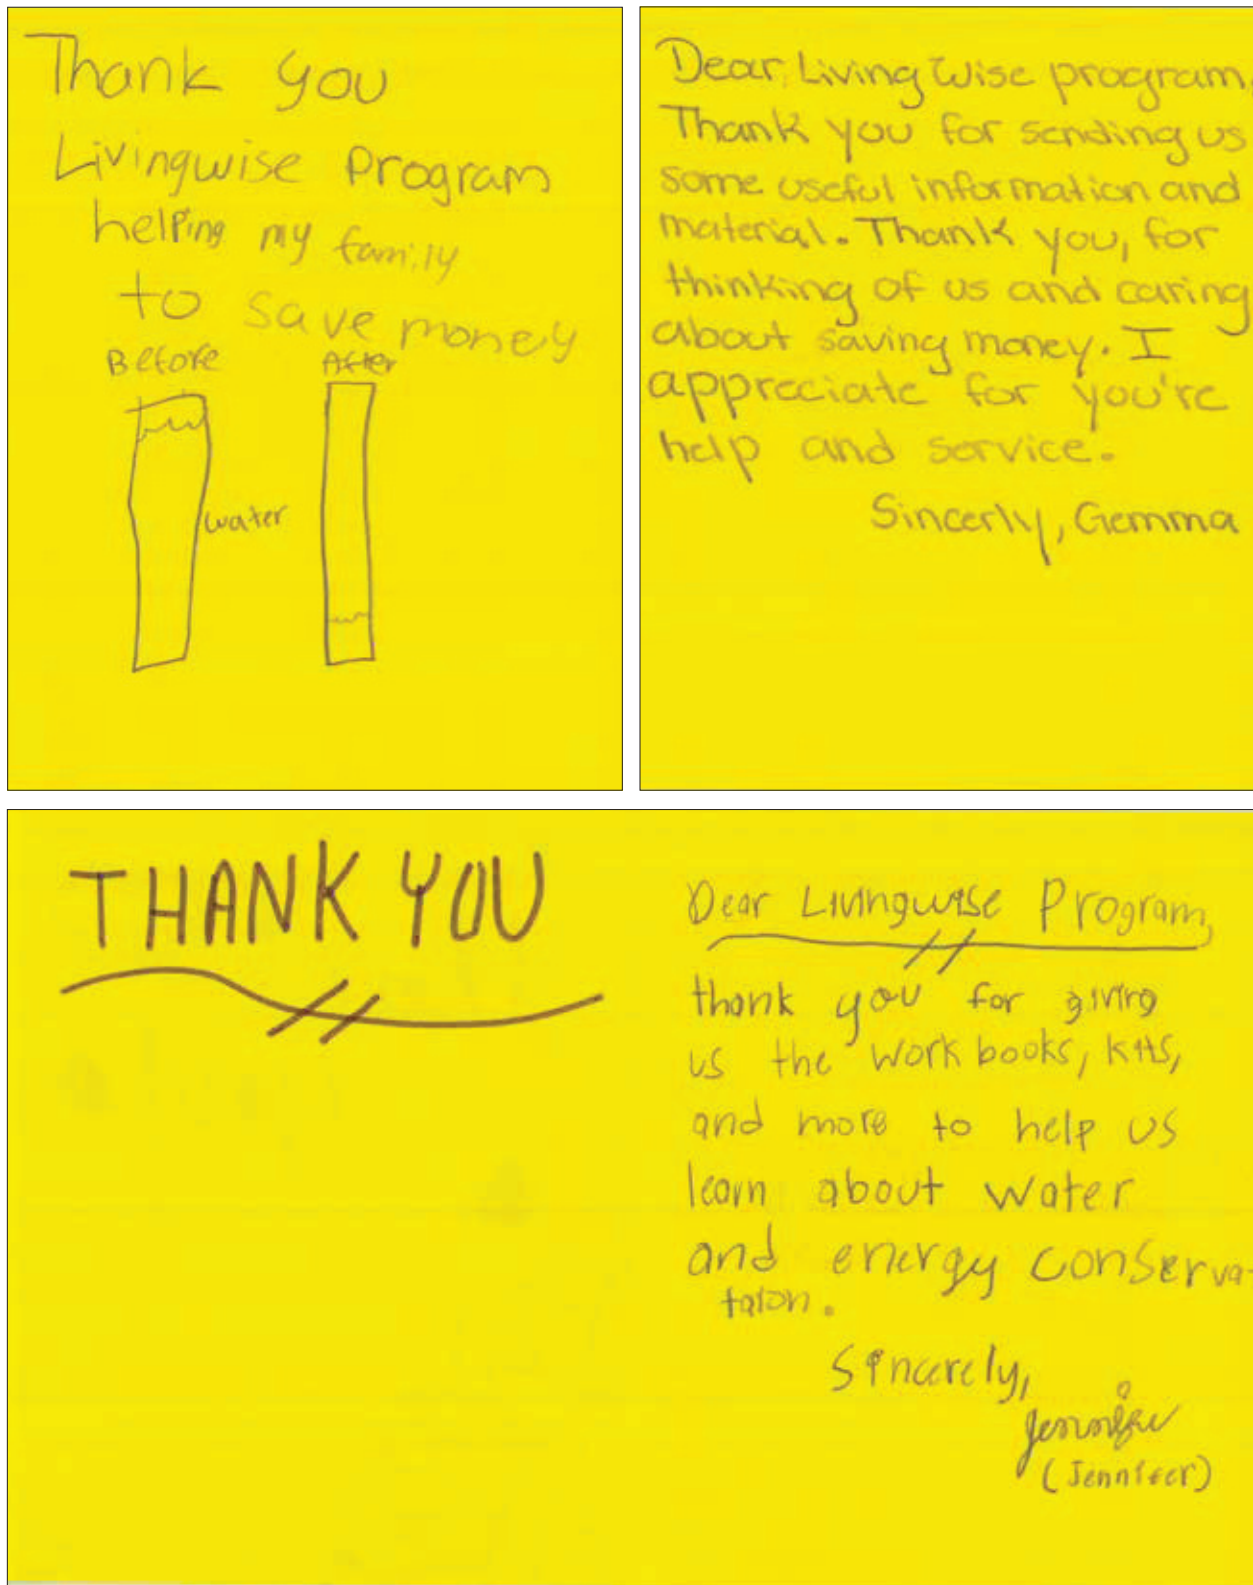 Thank you
Livingwise program
helping my family
to save money
Before After
water
Dear, Living Wise program,
Thank you for sending us
some useful information and
material. Thank you, for
thinking of us and caring
about saving money. I
appreciate for you're
help and service.
Sincerly, Gemma
THANK YOU
Dear Livingwise Program,
thank you for giving
us the work books, kits,
and more to help us
learn about water
and energy conserva-
taion.
Sincerely,
Jennifer
(Jennifer)